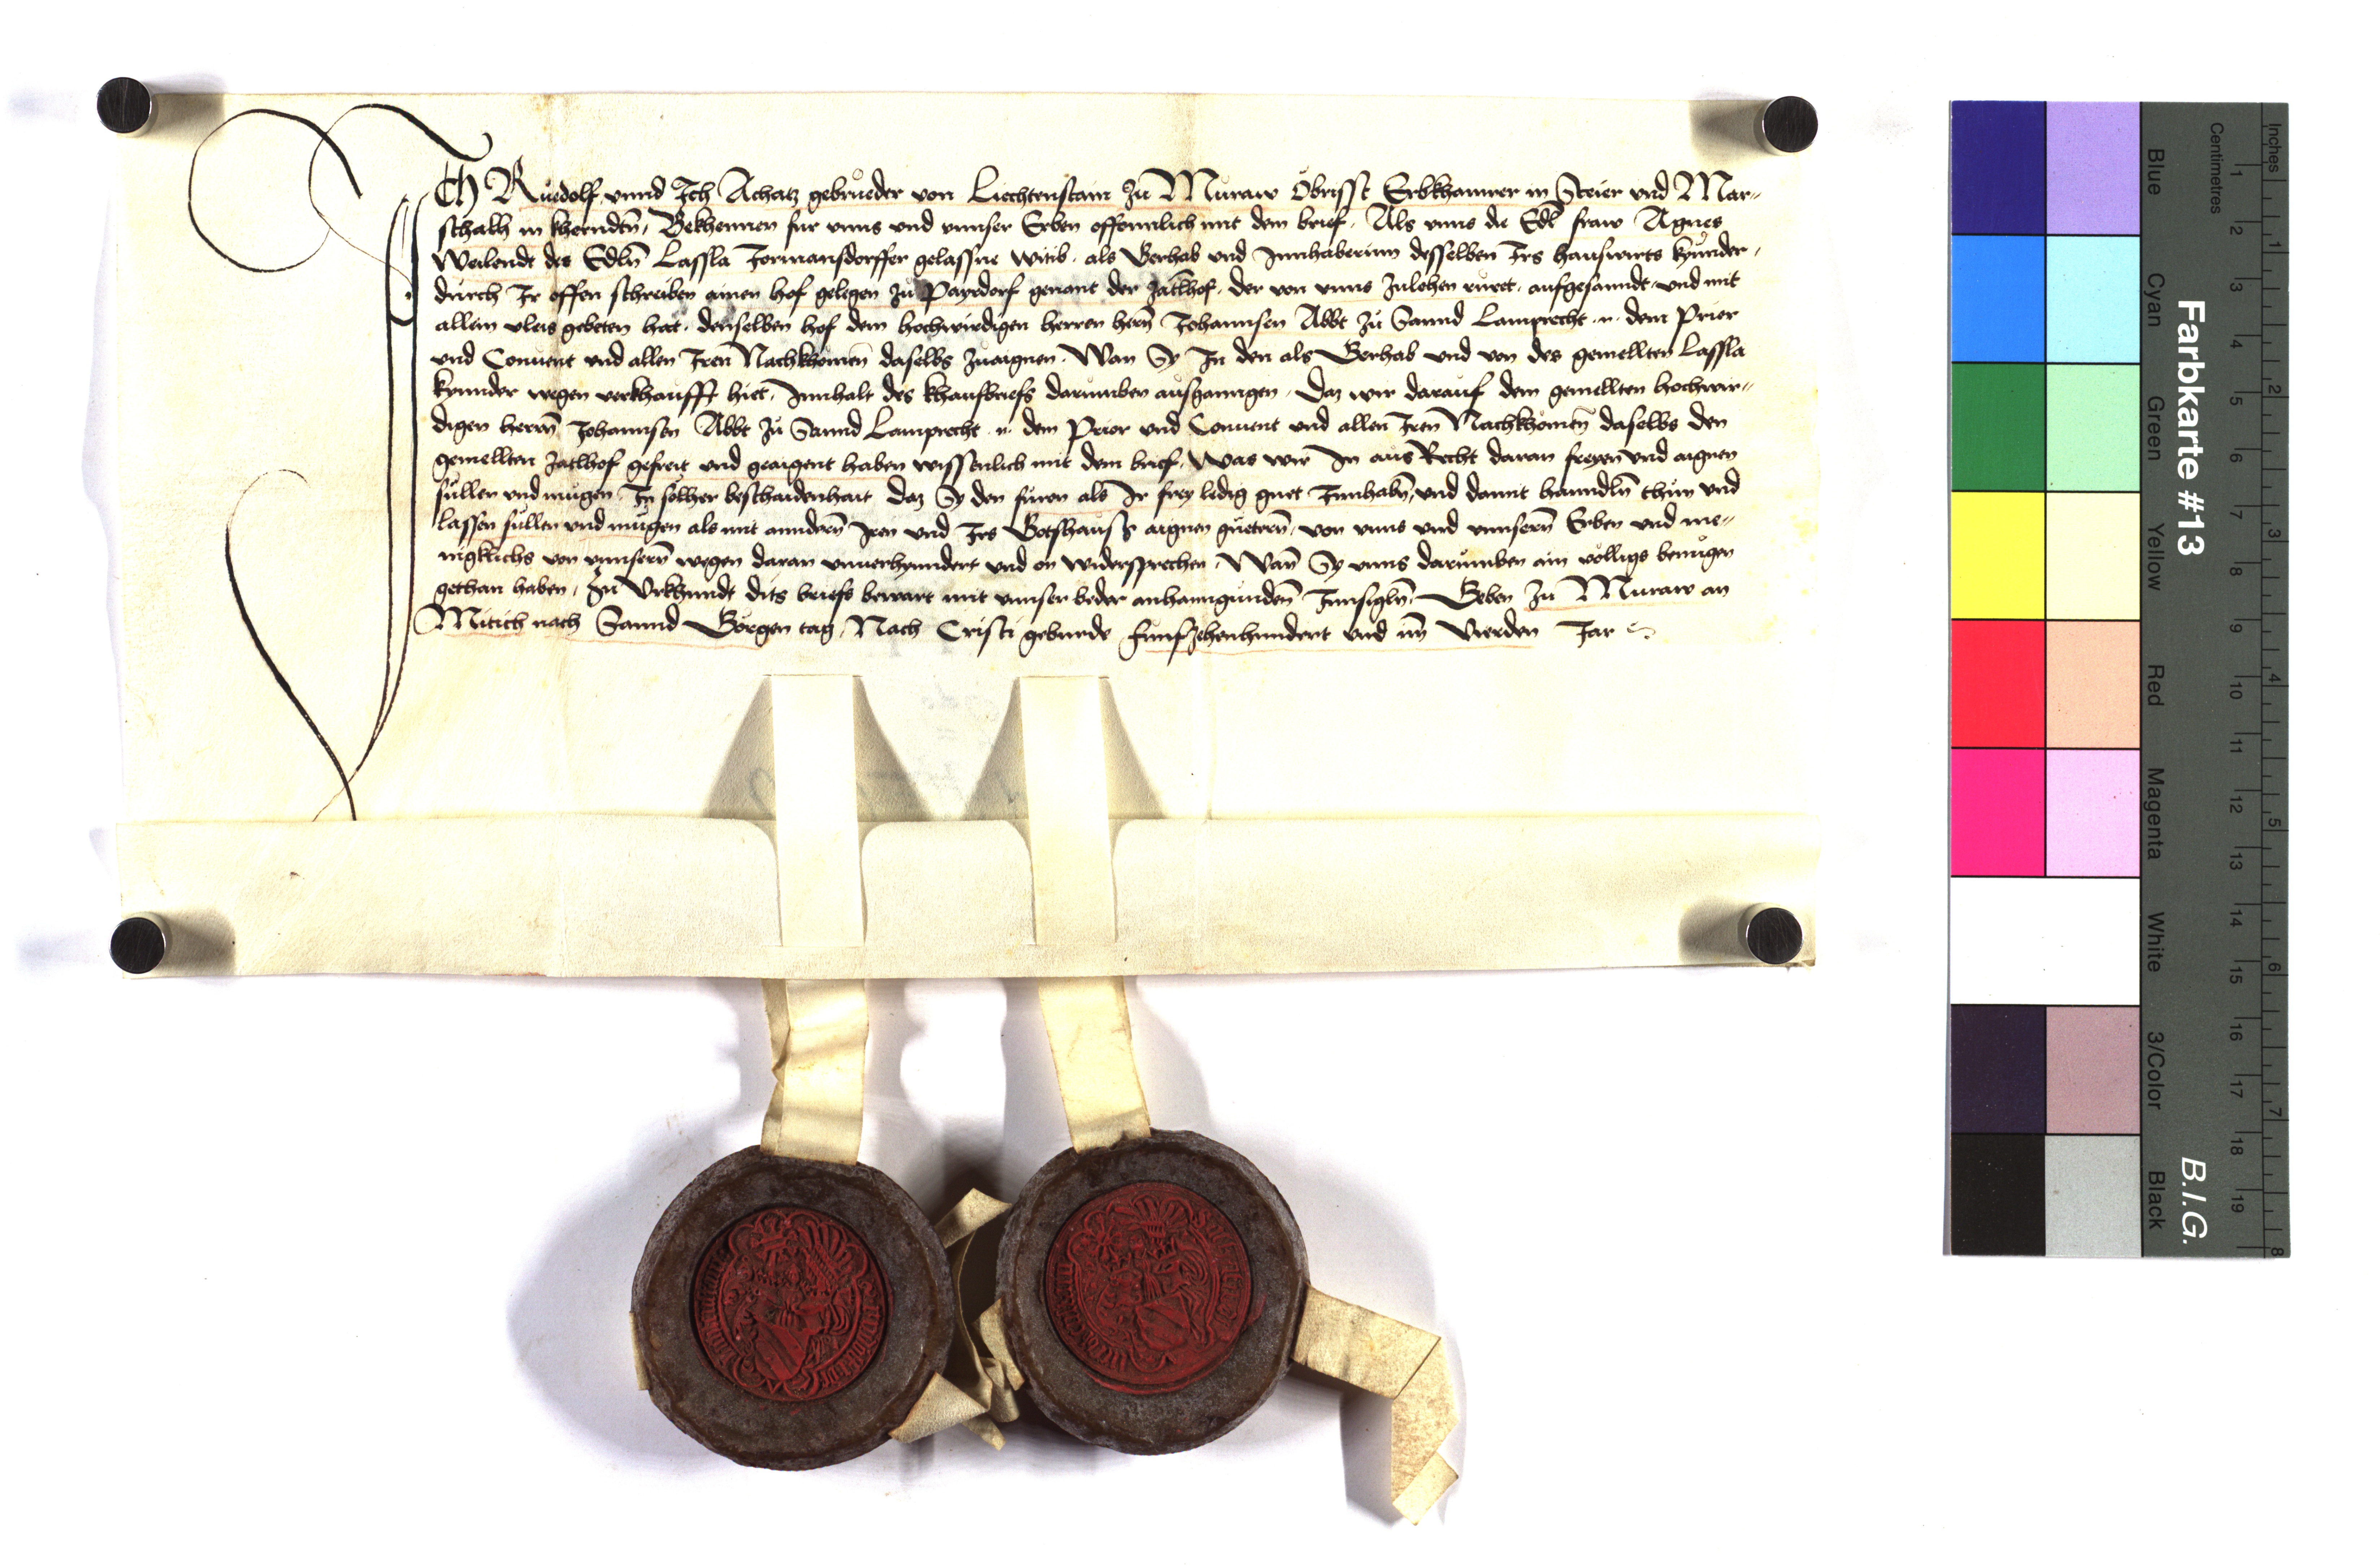 ICh Rüedolf vnnd Ich Achatz gebrüeder von Liechtenstain zu Muraw Obrisst Erbkhamrer in Steier vnd Mar-
schalh in khernndtn̄, Bekhennen für vnns vnd vnnser Erben offennlich mit dem brief. Als vnns die Edl fraw Agnes
Weilendt des Edln̄ Lassla Jormansdorffer gelassne witib. als Gerhab vnd Innhaberinn desselben Irs hauswirts kynnder,
durch Ir offen schreiben ainen hof gelegen zu Payrdorf genant der Zätlhof. der von vnns zulehen rüret. aufgesanndt. vnd mit
allem vleis gebeten hat. denselben hof dem hochwirdigen herren hern̄ Johannsen Abbt zu Sannd Lamprecht .n. dem Prior
vnd Conuent vnd allen Iren Nachkhomen̄ daselbs zuaignen. Wan Sy In den als Gerhab vnd von des gemellten Lassla
kynnder wegen verkhaufft hiet. Innhalt des khaufbriefs darumben ausganngen. Daz wir darauf dem gemellten hochwir-
digen herrn̄ Johannsen Abbt zu Sannd Lamprecht .n. dem Prior vnd Conuent vnd allen Iren Nachkhomen̄ daselbs den
gemellten Zatlhof gefreit vnd geaigent haben wissenlich mit dem brief. Was wir In aus Recht daran freyen vnd aignen
süllen vnd mügen. In solher beschaidenhait daz Sy den füron als Ir frey ledig guet Innhabn̄, vnd damit hanndln̄ thün vnd
lassen süllen vnd mügen als mit anndern̄ Iren vnd Irs Gotshauss aignen guetern̄. von vnns vnd vnnsern̄ Erben vnd me-
nigklichs von vnnsern̄ wegen daran vnuerhynndert vnd on widersprechen. Wan̄ Sy vnns darumben ain völligs benügen
gethan haben. Zu Vrkhundt dits briefs bewart mit vnnser beder anhanngunden̄ Innsigln̄. Geben zu Muraw an
Mitich nach Sannd Görgen tag. Nach Cristi geburde Funfzehenhundert vnd im̄ Vierden Jar
Farbkarte #13
B.I.G.
Centimetres
Inches
Blue
Cyan
Green
Yellow
Red
Magenta
White
3/Color
Black
1 2 3 4 5 6 7 8 9 10 11 12 13 14 15 16 17 18 19
1 2 3 4 5 6 7 8